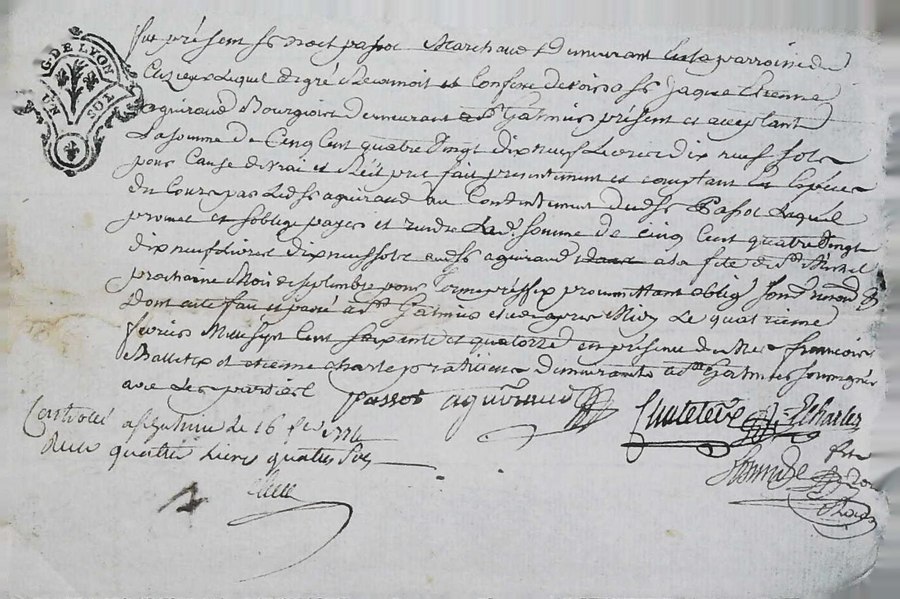 G. DE LYON
UN SOL
fut présent sr noel passot Marchand demeurant en la parroisse de
Cuzieu Lequel de gré Reconnoit et Confesse devoir a sr Jaque Etienne
aguiraud Bourgeois demeurant a st Galmier présent et aceptant
La somme de Cinq Cent quatre Vingt dix neuf Livres dix neuf sols
pour Cause de vrai et Réél pret fait presentement et comptant En Espece
du Cours par Ledt sr aguiraud au Contentement dudt sr Passot Lequel
promet et soblige payer et rendre Lad. somme de cinq Cent quatre Vingt
dix neuf Livres dix neuf sols audt sr aguiraud a la fete de st Michel
prochaine Mois de septembre pour terme prefix promettant oblig
Dont acte fait et passé a st Galmier Etude apres Midy Le quatrieme
fevrier Mille sept Cent soixante et quatorze en présence de Me francois
et etienne charle praticiens demeurants a st Galmier soussignés
avec Les parties passot aguiraud
Controlé a st Galmier le 16 fer 1774
Reçu quatre Livres quatre sols
Charles